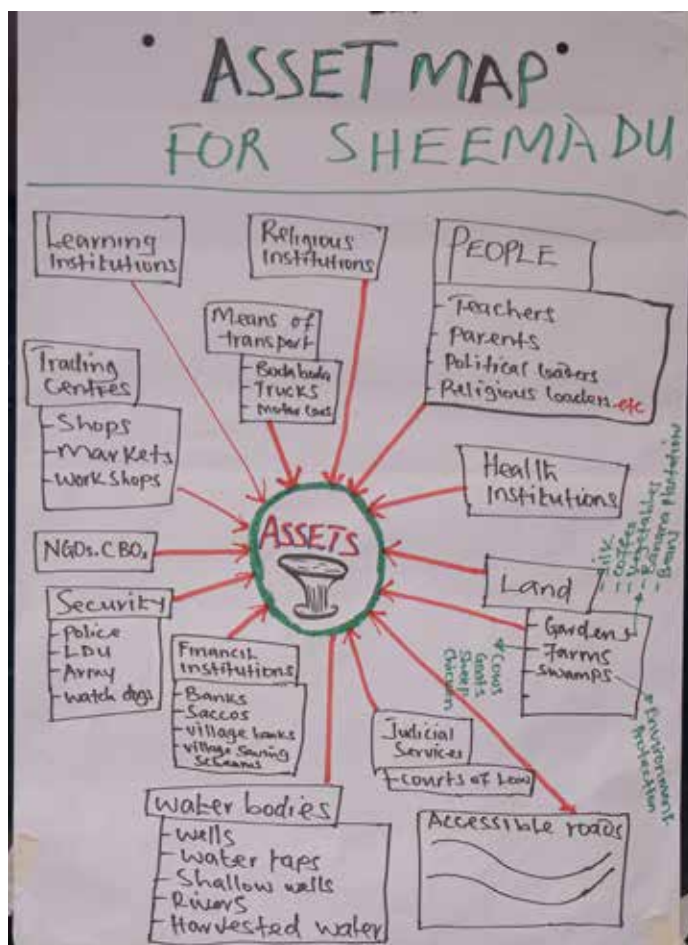 ASSET MAP
FOR SHEEMADU
Learning
Institutions
Religious
Institutions
PEOPLE
- Teachers
- Parents
- Political leaders
- Religious leaders.etc
Means of
transport
- Bodaboda
- Trucks
- Motor cars
Trading
Centres
- Shops
- Markets
- Work Shops
Health
Institutions
ASSETS
NGOs.CBOs
Land
- Gardens
- Farms
- Swamps
-
- Silk
- Coffee
- Vegetables
- Banana Plantation
- Beans
Cows
Goats
Sheep
Chicken
Environment
Protection
Security
- Police
- LDU
- Army
- Watch dogs
Financil
Institutions
- Banks
- Saccos
- Village banks
- Village Saving
Judicial
Services
- Courts of Law
Water bodies
- Wells
- Water taps
- Shallow wells
- Rivers
- Harvested water
Accessible roads